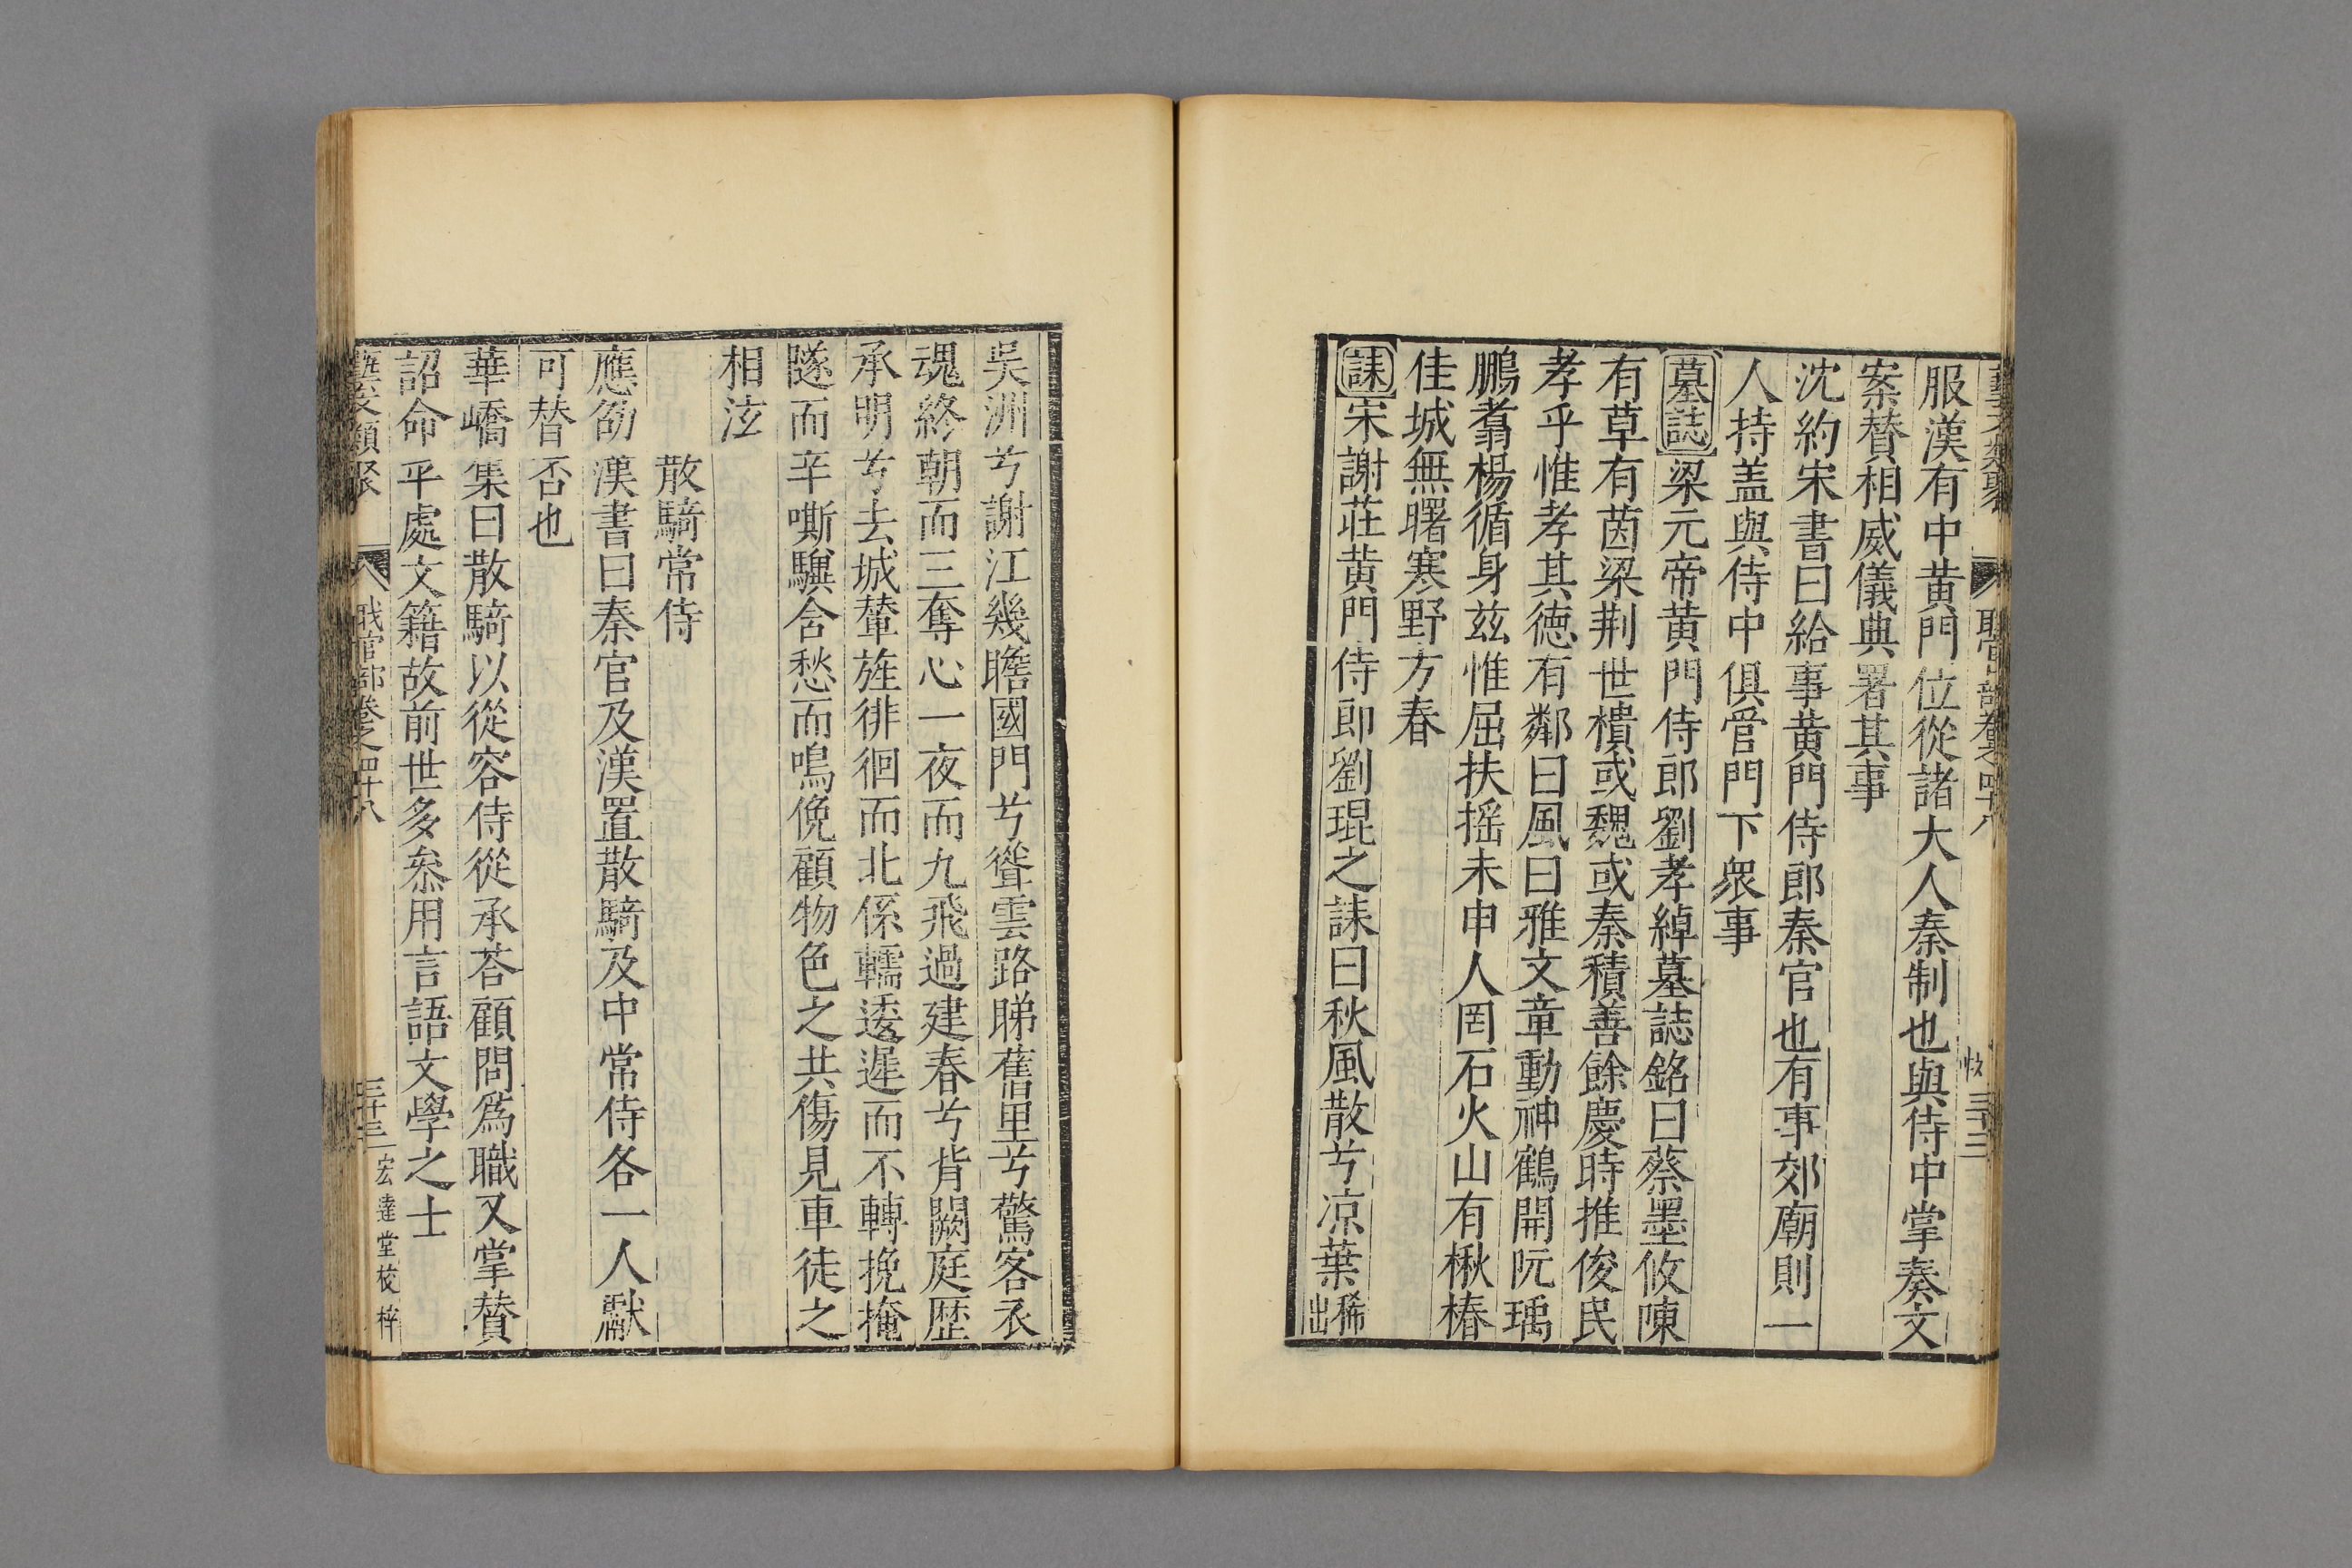 服漢有中黄門位從諸大人秦制也與侍中掌奏文
案賛相威儀典署其事
沈約宋書曰給事黄門侍郎秦官也有事郊廟則一
人持盖與侍中俱管門下衆事
墓誌梁元帝黄門侍郎劉孝綽墓誌銘曰蔡墨攸陳
有草有茵梁荆世檟或魏或秦積善餘慶時推俊民
孝乎惟孝其德有鄰曰風曰雅文章動神鶴開阮瑀
鵬翥楊循身兹惟屈扶摇未申人罔石火山有楸椿
佳城無曙寒野方春
誄宋謝莊黄門侍郎劉琨之誄曰秋風散兮凉葉稀出
吳洲兮謝江幾瞻國門兮聳雲路睇舊里兮驚客衣
魂終朝而三奪心一夜而九飛過建春兮背闕庭歴
承明兮去城輦旌徘徊而北係轜逶遲而不轉挽掩
隧而辛嘶驥含愁而鳴俛顧物色之共傷見車徒之
相泫
散騎常侍
應劭漢書曰秦官及漢置散騎及中常侍各一人獻
可替否也
華嶠集曰散騎以從容侍從承荅顧問爲職又掌賛
詔命平處文籍故前世多叅用言語文學之士
藝文類聚 職官部卷之四十八 三十三 宏達堂校梓